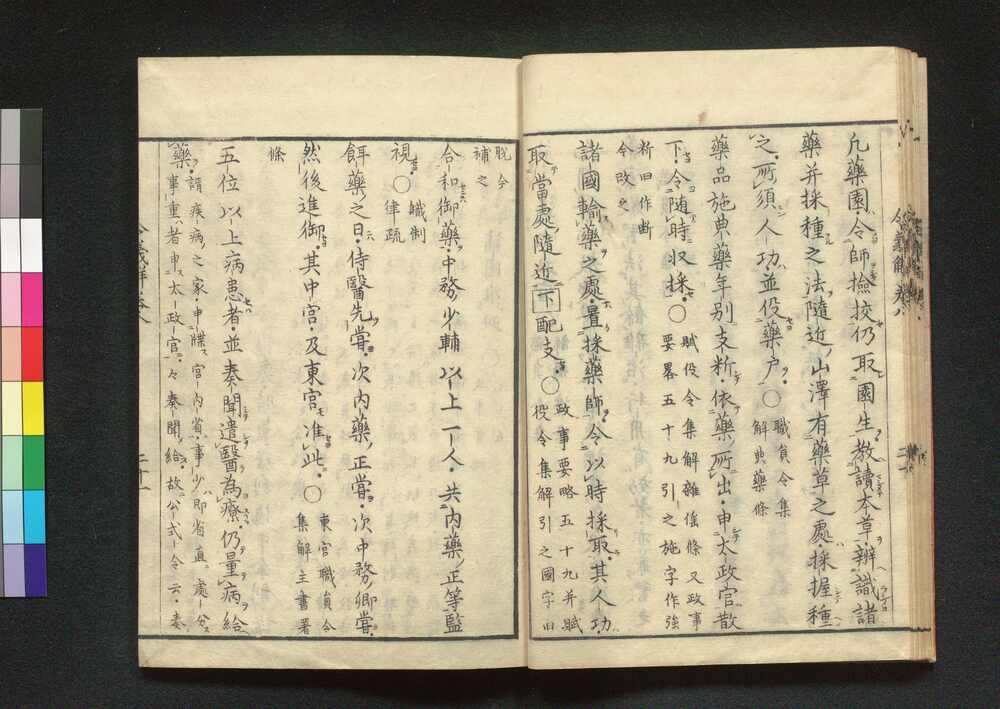 凡藥園令師檢挍仍取園生教讀本草辨識諸
藥并採種之法隨近山澤有藥草之處採握種
之所須人功並役藥戶〇職員令集
解典藥條
藥品施典藥年別支料依藥所出申太政官散
下令随時收採〇賦役令集解雜徭條又政事
要畧五十九引之施字作強
断旧作断
今改之
諸國輸藥之處置採藥師令以時採取其人功
取當處隨近下配支〇政事要略五十九并賦
役令集解引之國字旧
脫今
補之
合和御藥中務少輔以上一人共內藥正等監
視〇職制
律疏
餌藥之日侍醫先嘗次內藥正嘗次中務卿嘗
然後進御其中宮及東宮准此〇東宮職員令
集解主書署
條
五位以上病患者並奏聞遣醫為療仍量病給
藥謂疾病之家申牒宮內省事少即省直處分
事重者申太政官々奏聞給故公式令云奏